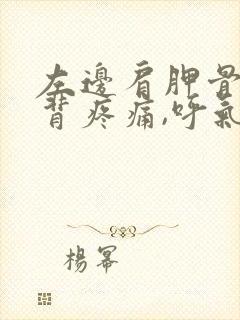 左邊肩胛骨
背疼痛,呼氣
楊冪